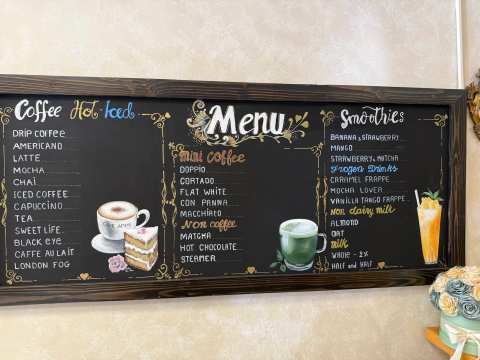 Coffee Hot-Iced
DRIP COFFEE
AMERICANO
LATTE
MOCHA
CHAI
ICED COFFEE
CAPUCCINO
TEA
SWEET LIFE
BLACK EYE
CAFFE AU LAIT
LONDON FOG
Menu
Mini coffee
DOPPIO
CORTADO
FLAT WHITE
CON PANNA
MACCHIATO
Non coffee
MATCHA
HOT CHOCOLATE
STEAMER
Smoothies
BANANA & STRAWBERRY
MANGO
STRAWBERRY & MATCHA
Frozen Drinks
CARAMEL FRAPPE
MOCHA LOVER
VANILLA TANGO FRAPPE
Non dairy milk
ALMOND
OAT
Milk
WHOLE - 2%
HALF and HALF